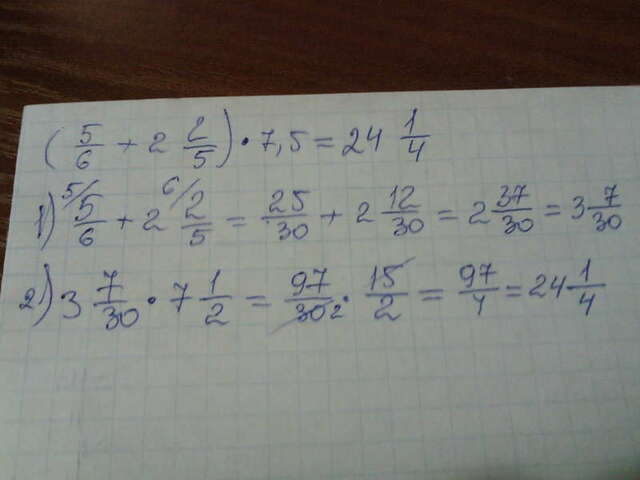 (5/6 + 2 2/5) · 7,5 = 24 1/4
1) 5/ 5/6 + 2 6/ 2/5 = 25/30 + 2 12/30 = 2 37/30 = 3 7/30
2) 3 7/30 · 7 1/2 = 97/30 2 · 15/2 = 97/4 = 24 1/4